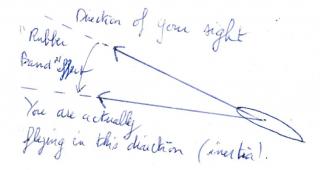 Direction of your sight
"Rubber
Band" effect
You are actually
flying in this direction (inertia).